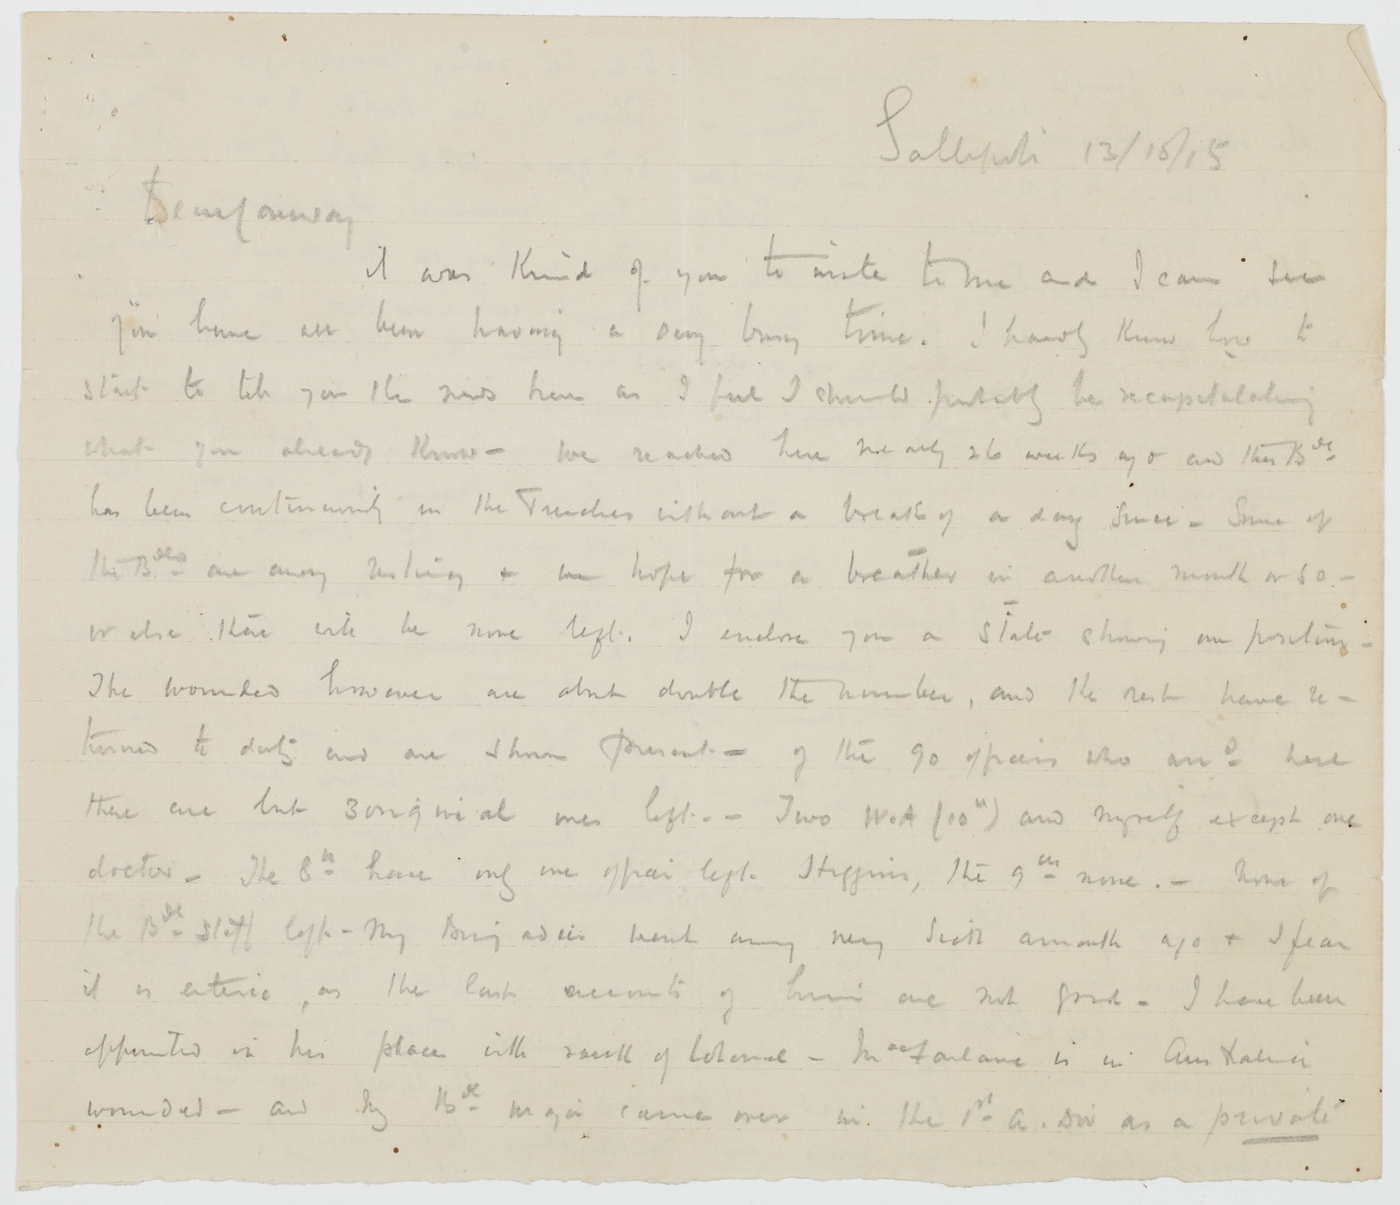 Gallipoli 13/10/15
Dear Conway
it was kind of you to write to me and I can see
you have all been having a very busy time. I hardly know how to
start to tell you the news here as I feel I should probably be recapitulating
what you already know – We reached here nearly 26 weeks ago and this Bde
has been continuously in the Trenches without a break of a day since – Some of
the Bdes are away resting & we hope for a breather in another month or so –
or else there will be none left. I enclose you a State showing our position –
The wounded however are about double the number, and the rest have re-
turned to duty and are shown present – Of the 90 officers who arrd here
there are but 3 original ones left. – Two W.A (10th) and myself except one
doctor – The 8th have only one officer left Higgins, the 9th none. – None of
the Bde Staff left – My Brigadier went away very sick a month ago & I fear
it is enteric, as the last accounts of him are not good – I have been
appointed in his place with rank of Colonel – MacFarlane is in Australia
wounded – and my Bde Major came over in the 1st A. Div as a private